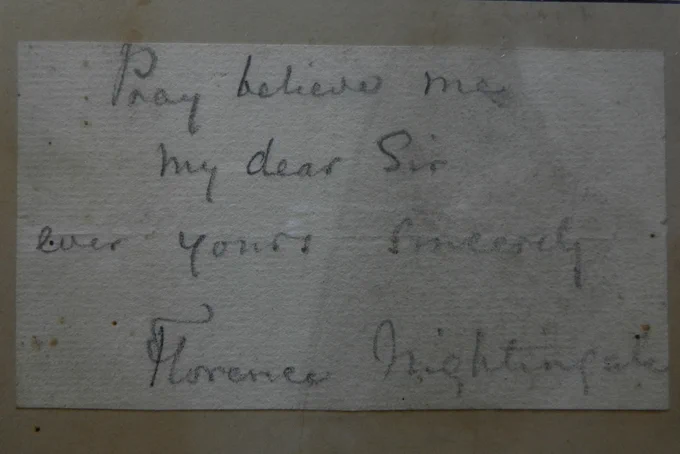 Pray believe me
my dear Sir
ever yours sincerely
Florence Nightingale